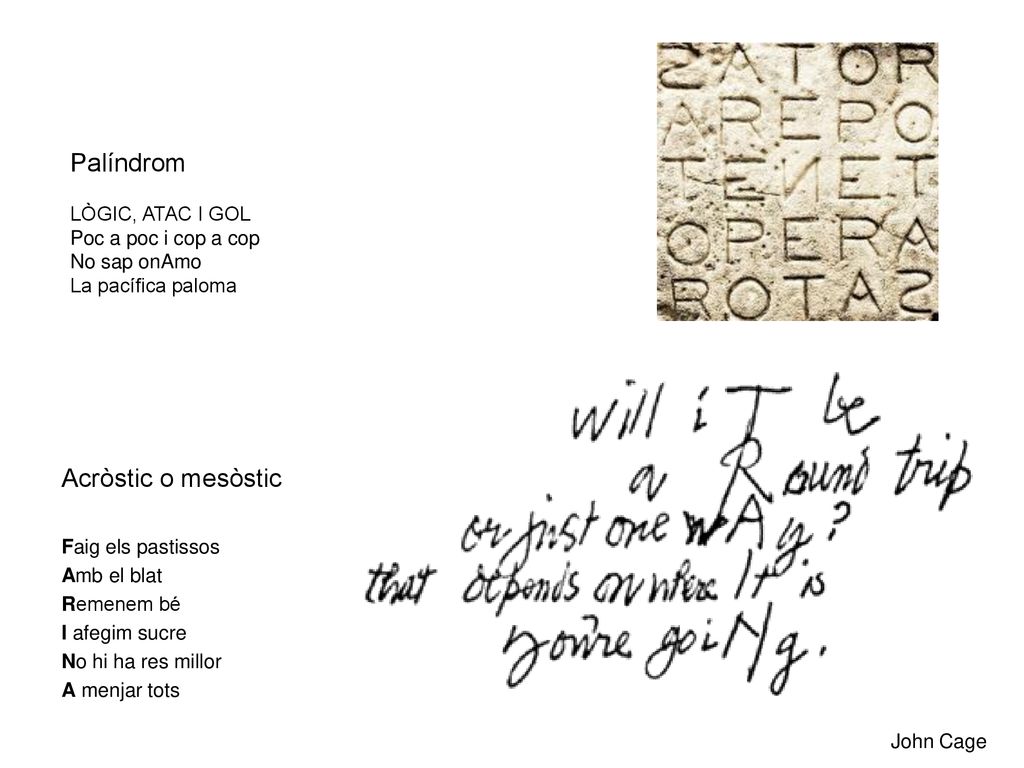 Palíndrom
LÒGIC, ATAC I GOL
Poc a poc i cop a cop
No sap onAmo
La pacífica paloma
SATOR
AREPO
TENET
OPERA
ROTAS
Acròstic o mesòstic
Faig els pastissos
Amb el blat
Remenem bé
I afegim sucre
No hi ha res millor
A menjar tots
will iT be
a Round trip
or just one wAy?
that depends on where It is
you're goiNg.
John Cage